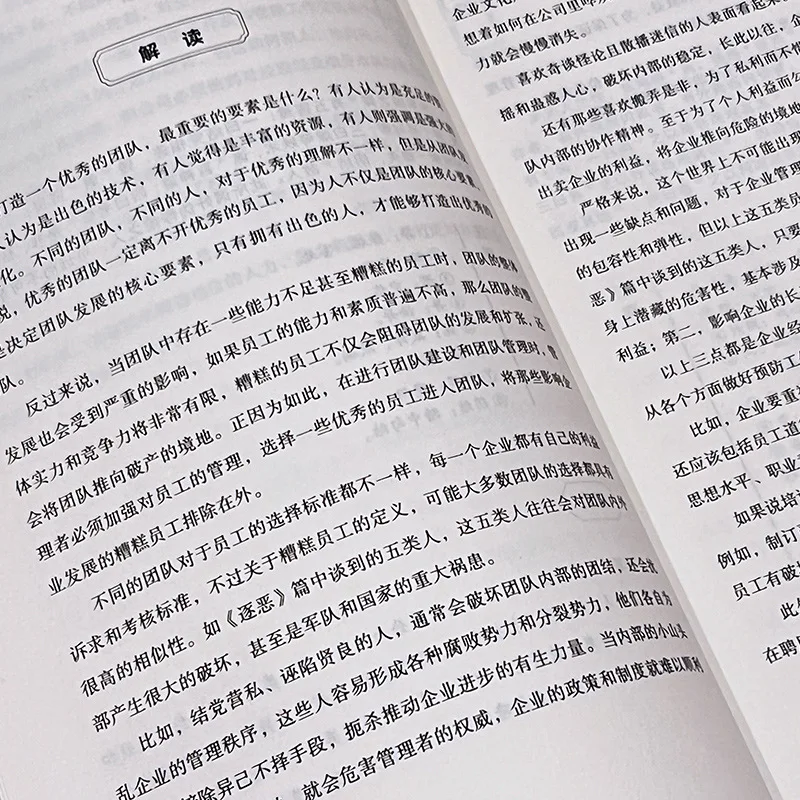 解 读
打造一个优秀的团队，最重要的要素是什么？有人认为是充足的
人认为是出色的技术，有人觉得是丰富的资源，有人则强调是强大的
化。不同的团队，不同的人，对于优秀的理解不一样，但是从团队
说，优秀的团队一定离不开优秀的员工，因为人不仅是团队的核心要素，
是决定团队发展的核心要素，只有拥有出色的人，才能够打造出优秀的
队。
反过来说，当团队中存在一些能力不足甚至糟糕的员工时，团队的整体
发展也会受到严重的影响，如果员工的能力和素质普遍不高，那么团队的整
体实力和竞争力将非常有限，糟糕的员工不仅会阻碍团队的发展和扩张，还
会将团队推向破产的境地。正因为如此，在进行团队建设和团队管理时，管
理者必须加强对员工的管理，选择一些优秀的员工进入团队，将那些影响企
业发展的糟糕员工排除在外。
不同的团队对于员工的选择标准都不一样，每一个企业都有自己的利益
诉求和考核标准，不过关于糟糕员工的定义，可能大多数团队的选择都具有
很高的相似性。如《逐恶》篇中谈到的五类人，这五类人往往会对团队内外
部产生很大的破坏，甚至是军队和国家的重大祸患。
比如，结党营私、诬陷贤良的人，通常会破坏团队内部的团结，还会扰
乱企业的管理秩序，这些人容易形成各种腐败势力和分裂势力，他们各自为
排除异己不择手段，扼杀推动企业进步的有生力量。当内部的小山头
就会危害管理者的权威，企业的政策和制度就难以顺利
企业文化
想着如何在公司里
力就会慢慢消失。
喜欢奇谈怪论且散播迷信的人表面看起来
摇和蛊惑人心，破坏内部的稳定，长此以往，企
还有那些喜欢搬弄是非，为了私利而不惜
队内部的协作精神。至于为了个人利益而
出卖企业的利益，将企业推向危险的境地
严格来说，这个世界上不可能出现
出现一些缺点和问题，对于企业管理
的包容性和弹性，但以上这五类员
恶》篇中谈到的这五类人，只要
身上潜藏的危害性，基本涉及
利益；第二，影响企业的长
以上三点都是企业经
从各个方面做好预防工
比如，企业要重
还应该包括员工道
思想水平、职业
如果说培
例如，制订
员工有破
此
在聘